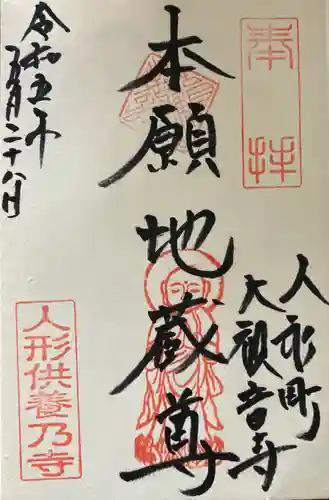 奉拝
本願
地蔵尊
人形町
大観音寺
令和五年
二十八日
人形供養乃寺